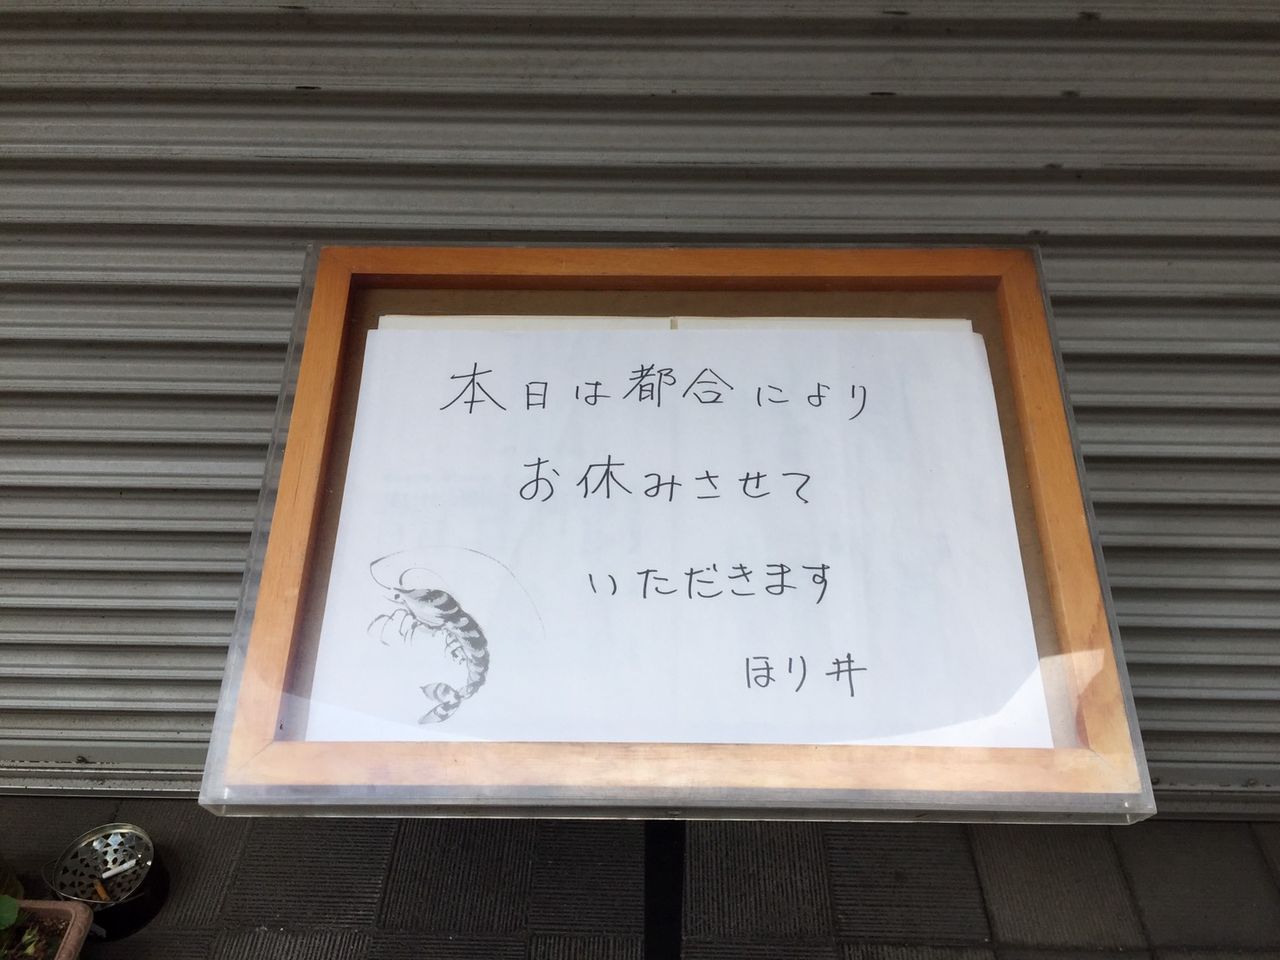 本日は都合により
お休みさせて
いただきます
ほり井